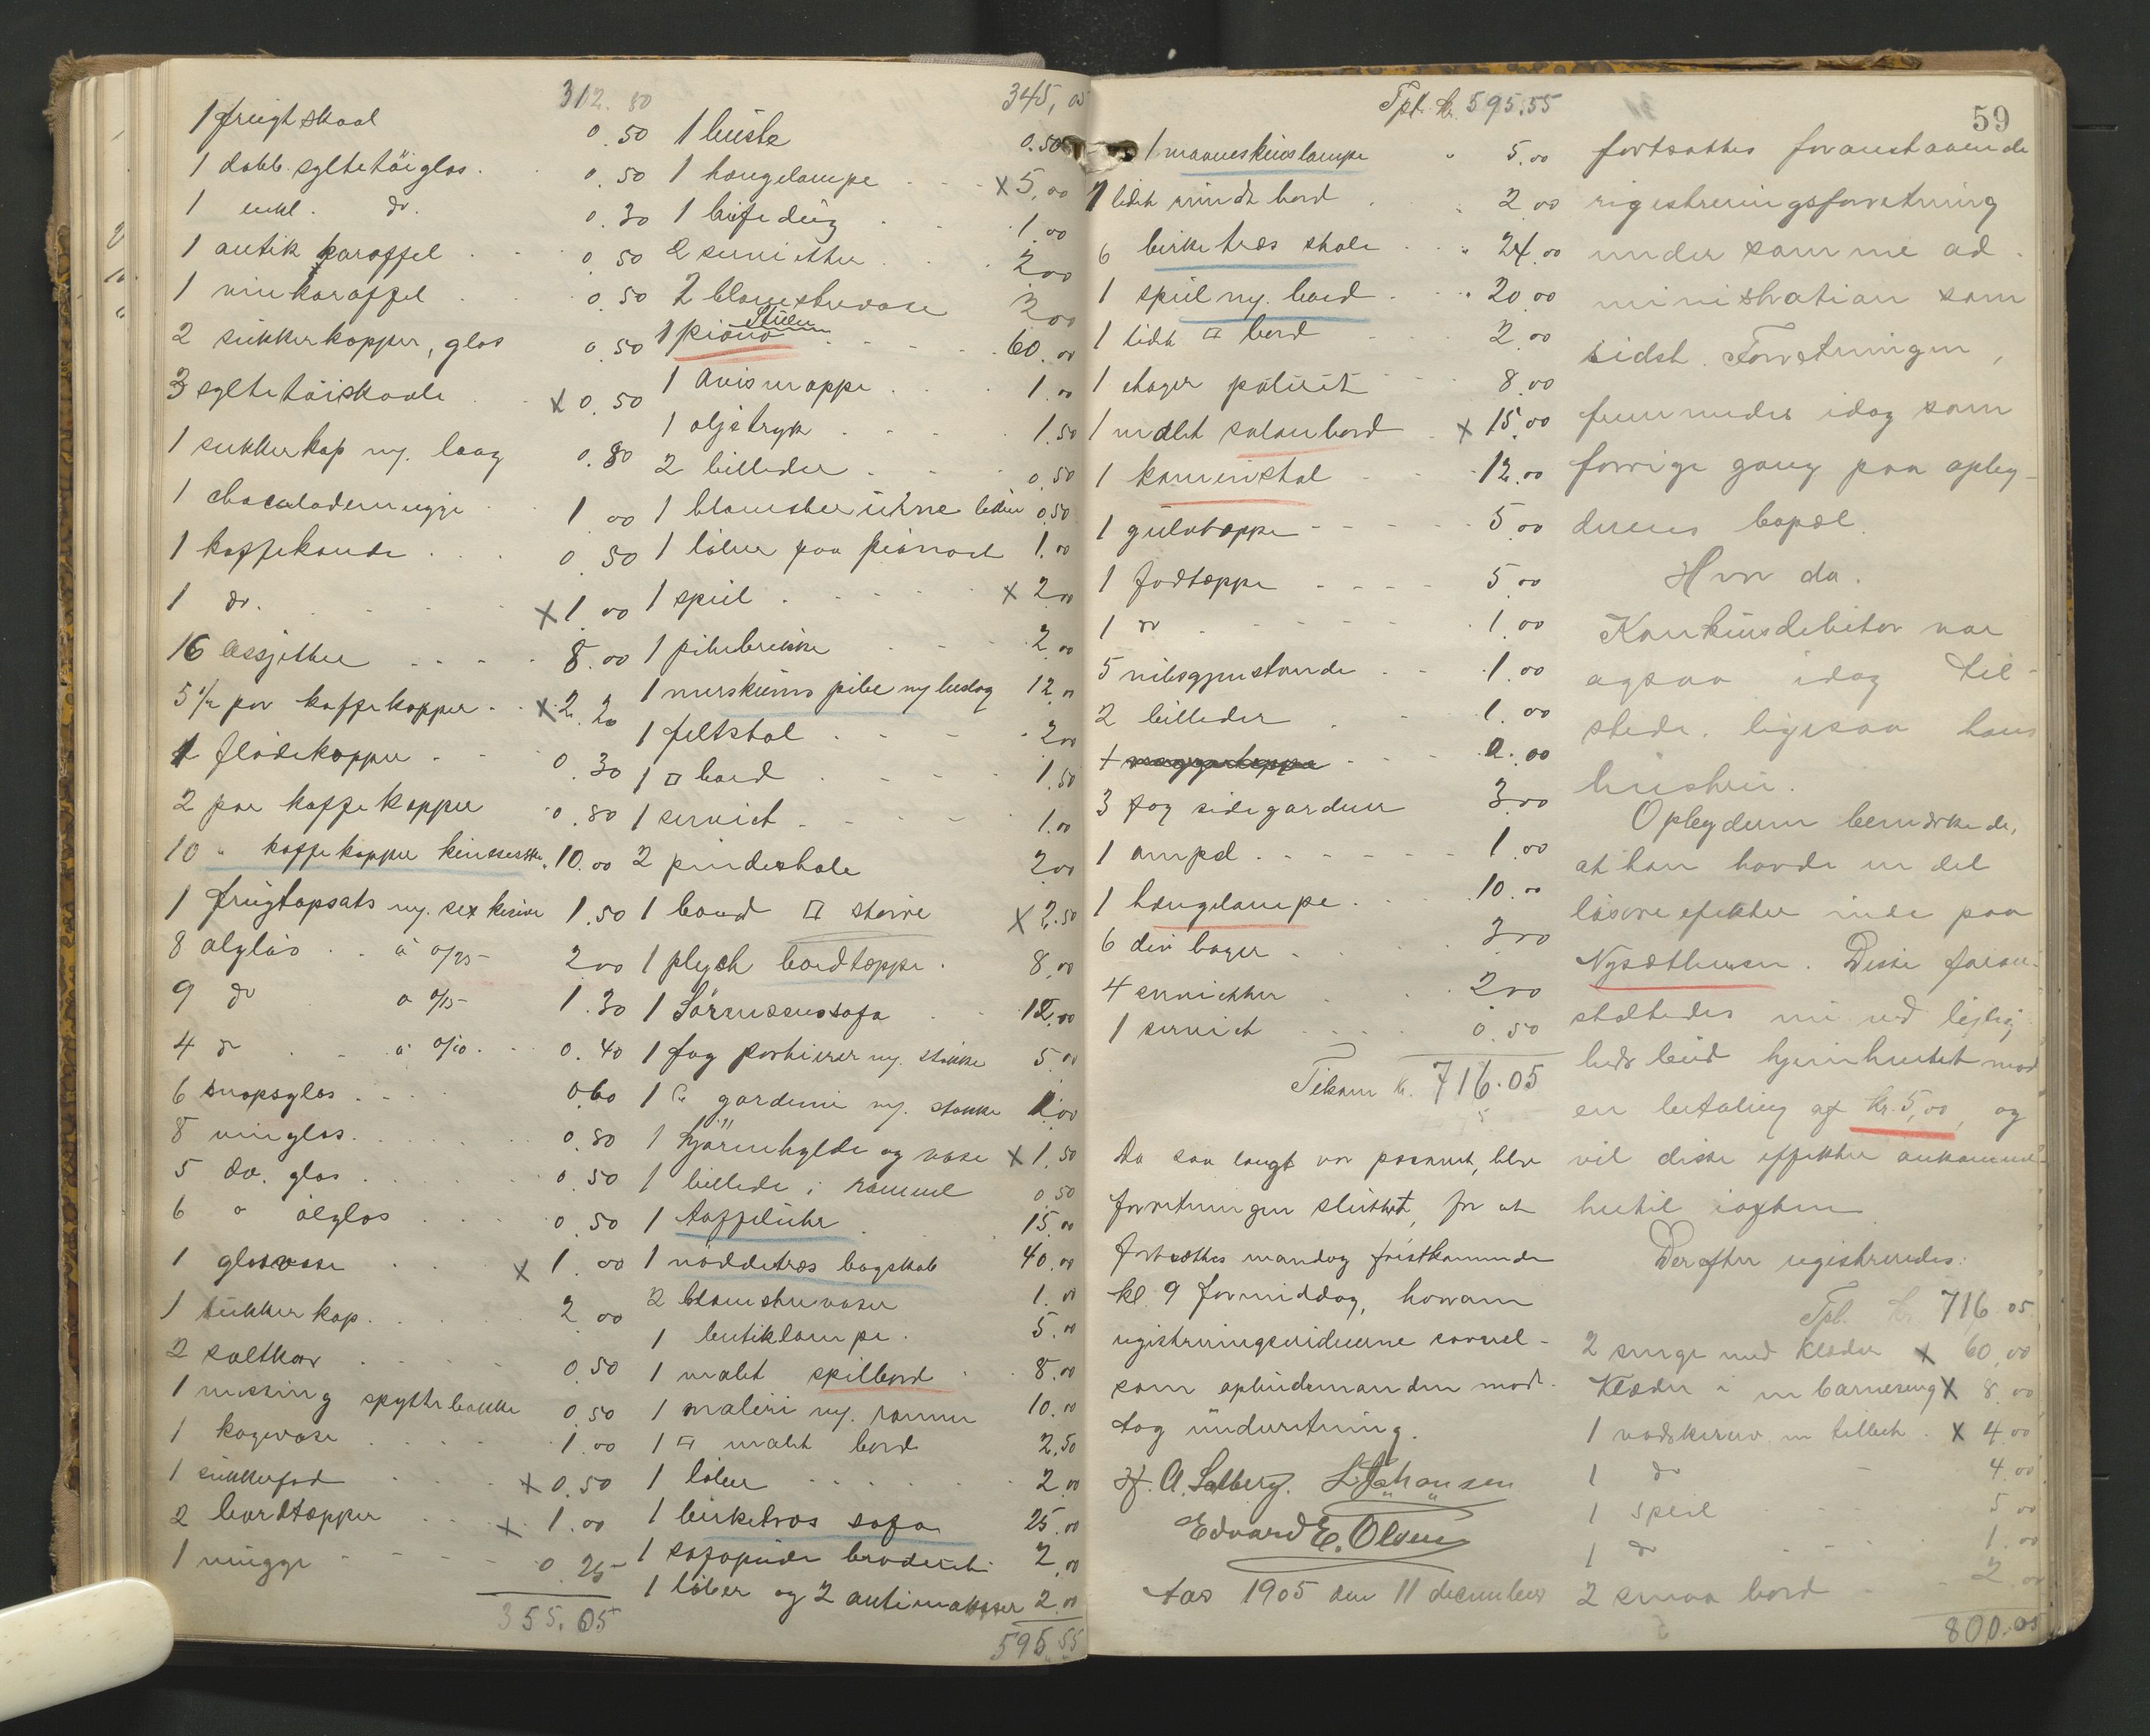 312.80
1 frugtskaal 0.50
1 dobb. syltetöiglas 0.50
1 enkl. do. 0.30
1 antik karaffel 0.50
1 vinkaraffel 0.50
2 sukkerkopper, glas 0.50
3 syltetöiskaale x 0.50
1 sukkerkop m. laag 0.80
1 chocolademugge 1.00
1 kaffekande 0.50
1 do. x 1.00
16 assjetter 8.00
5 1/2 par kaffekopper x 2.20
1 flödekopper 0.30
2 par kaffekopper 0.80
10 " kaffekopper kinesiske 10.00
1 frugtopsats m. sex knive 1.50
8 ölglas à 0/25 2.00
9 do à 0/15 1.30
4 do à 0/10 0.40
6 snapsglas 0.60
8 vinglas 0.80
5 do. glas 0.50
6 " ölglas 0.50
1 glasvase x 1.00
1 sukkerkop 2.00
2 saltkar 0.50
1 messing spyttebakke 0.50
1 kagevase 1.00
1 sukkerfad x 0.50
2 bordtæpper x 1.00
1 mugge 0.25
355.05
345,05
1 büste 0.50
1 hængelampe x 5.00
1 bufedug 1.00
2 servietter 2.00
2 blomstervase 2.00
1 piano Stüler 60.00
1 avismappe 1.00
1 oljetryk 1.50
2 billeder 0.50
1 blomsterurne liden 0.50
1 löber paa pianoet 1.00
1 speil x 2.00
1 pibebrikke 2.00
1 merskums pibe m. beslag 12.00
1 feltstol 2.00
1 □ bord 1.50
1 serviet 1.00
2 pindestole 2.00
1 bord □ större x 2.50
1 plysch bordtæppe 8.00
1 Sörensenssofa 12.00
1 fag portierer m. stokke 5.00
1 " gardiner m. stokke 1.00
1 hjörnehylde og vase x 1.50
1 billede i ramme 0.50
1 taffeluhr 15.00
1 nöddetræs bogskab 40.00
2 blomstervaser 1.00
1 butiklampe 5.00
1 malet spillbord 8.00
1 maleri m. ramme 10.00
1 □ malet bord 2.50
1 löber 2.00
1 birketræs sofa 25.00
1 sofapude broderet 2.00
1 löber og 2 antimakasser 2.00
595.55
Tpt. kr. 595.55
1 maaneskinslampe 5.00
1 lidet rundt bord 2.00
6 birketræs stole 24.00
1 speil m. bord 20.00
1 lidet □ bord 2.00
1 etager poleret 8.00
1 malet salonbord x 15.00
1 kaminstol 12.00
1 gulvtæppe 5.00
1 fodtæppe 5.00
1 do 1.00
5 nibsgjenstande 1.00
2 billeder 1.00
3 fag sidegardiner 3.00
1 ampel 1.00
1 hængelampe 10.00
6 div bager 3.00
4 servietter 2.00
1 serviet 0.50
Tilsam kr. 716.05
Da saa langt var passeret, blev
forretningen sluttet, for at
fortsættes mandag förstkommende
kl. 9 formiddag, hvorom
registreringsvidnerne saavel-
som opbudsmanden mod-
tog underretning.
H. A. Solberg. L. Johansen
Edvard E. Olsen
Aar 1905 den 11 december
59
fortsattes foranstaaende
registreringsforretning
under samme ad-
ministration som
sidst. Forretningen
fremmedes idag som
forrige gang paa opby-
derens bopæl.
Hvor da.
Konkursdebitor var
ogsaa idag til-
stede, ligesaa hans
hustru.
Opbyderen bemærkede,
at han havde en del
lösöreefekter inde paa
Nysætteren. Disse foran-
staltedes nu ved leilig-
heds bud hjemhentet mod
en betaling af kr. 5,00, og
vil disse effekter ankomme
hertil iaften
Derefter registreredes:
Tpt. kr. 716.05
2 senge med klæder x 60.00
Klæder i en barneseng x 8.00
1 vadskerserv. m tilbeh. x 4.00
1 do 4.00
1 speil 5.00
1 do 1.00
2 smaa bord 2.00
800.05